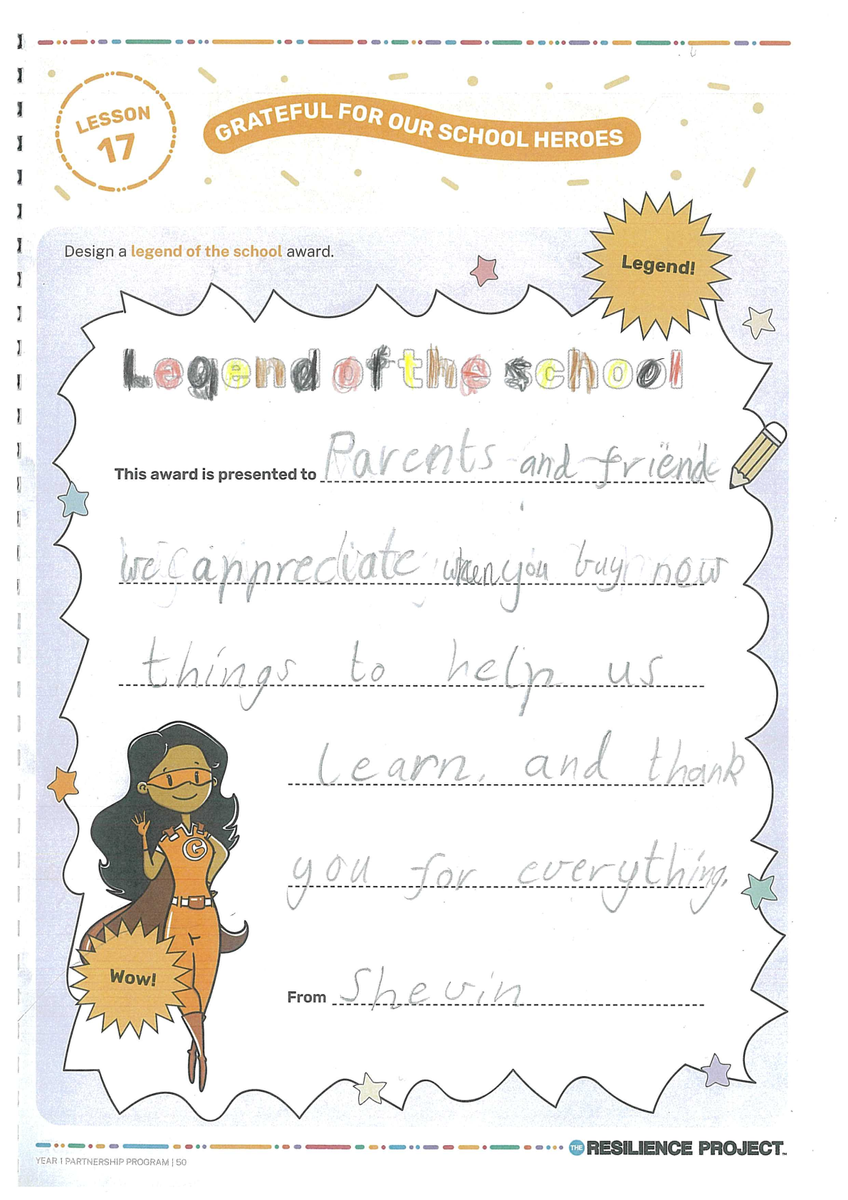 LESSON
17
GRATEFUL FOR OUR SCHOOL HEROES
Design a legend of the school award.
Legend!
Legend of the school
This award is presented to Parents and friends
we appreciate when you buy now
things to help us
learn, and thank
you for everything.
Wow!
From Shevin
YEAR 1 PARTNERSHIP PROGRAM | 50
THE RESILIENCE PROJECT